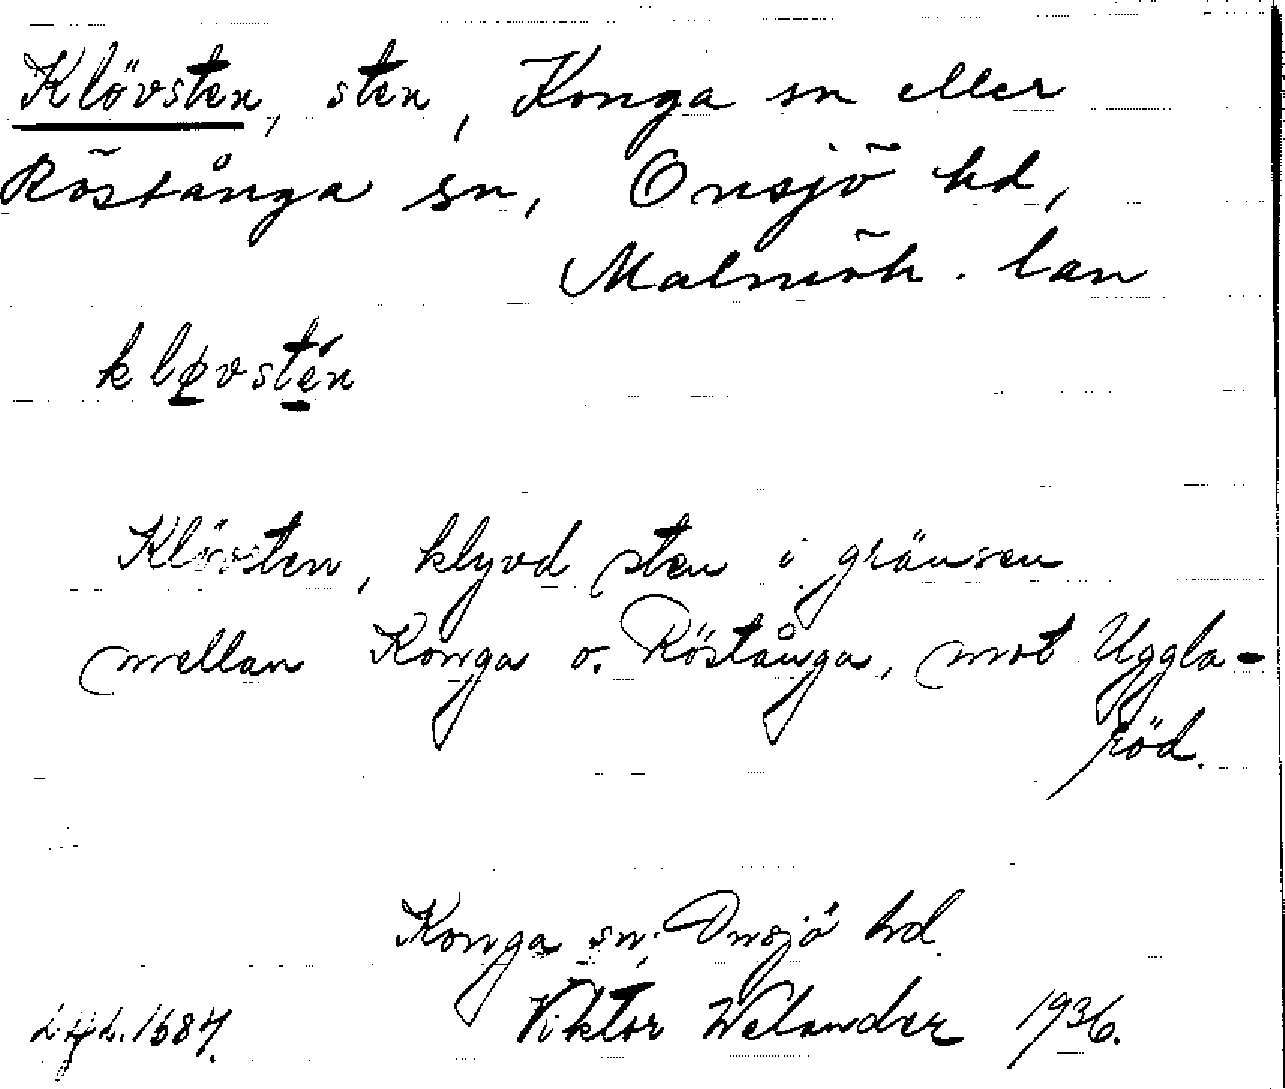 Klövsten, sten, Konga sn eller
Röstånga sn, Onsjö hd,
Malmöh. län
kløvstén
Klövsten, klyvd sten i gränsen
mellan Konga o. Röstånga, mot Uggla-
röd.
Konga sn; Onsjö hd.
Viktor Welander 1936.
1684.